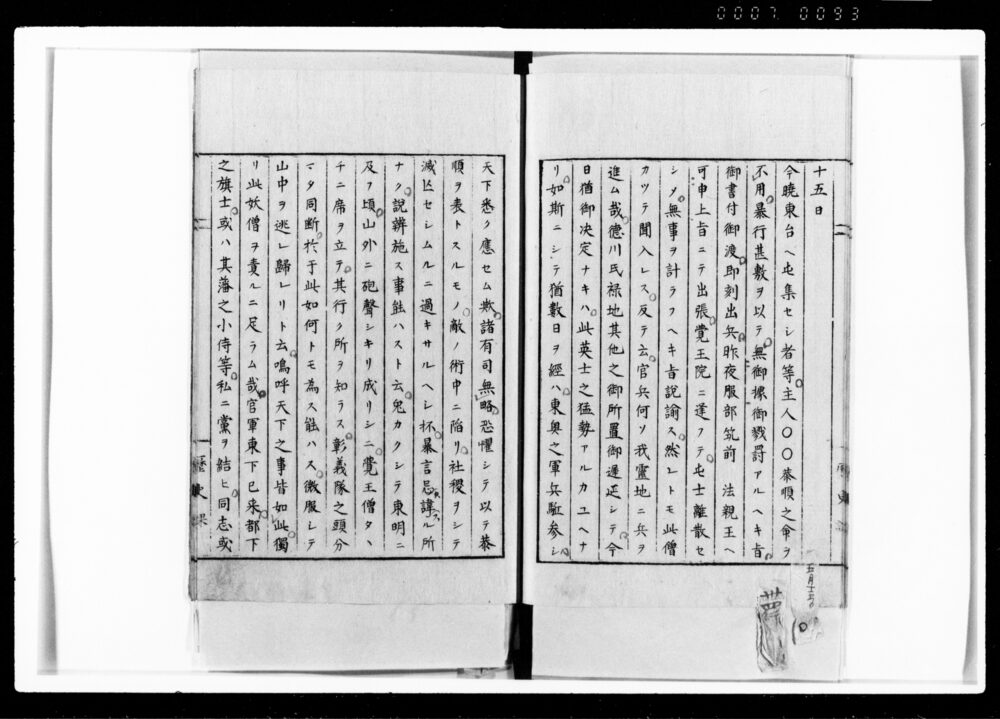 0007 0093
十五日
今曉東台ヘ屯集セシ者等主人〇〇恭順之命ヲ
不用暴行甚敷ヲ以テ無御據御戮罰アルヘキ旨
御書付御渡即刻出兵昨夜服部筑前 法親王ヘ
可申上旨ニテ出張覺王院ニ逢フテ屯士離散セ
シメ無事ヲ計ラフヘキ旨説諭ス然レトモ此僧
カツテ聞入レス反テ云官兵何ソ我靈地ニ兵ヲ
進ム哉德川氏禄地其他之御所置御遅延シテ今
日猶御决定ナキハ此英士之猛勢アルカユヘナ
リ如斯ニシテ猶數日ヲ經ハ東奥之軍兵駈参シ
五月十五日
天下悉ク應セム欤諸有司無略恐懼シテ以テ恭
順ヲ表トスルモノ敵ノ術中ニ陥リ社稷ヲシテ
滅亡セシムルニ過キサルヘシ杯暴言忌諱ル所
ナク説辨施ス事能ハスト云兎カクシテ東明ニ
及フ頃山外ニ砲聲シキリ成リシニ覺王僧タヽ
チニ席ヲ立テ其行ク所ヲ知ラス彰義隊之頭分
マタ同断於于此如何トモ為ス能ハス微服シテ
山中ヲ逃レ歸レリト云嗚呼天下之事皆如此獨
リ此妖僧ヲ責ルニ足ラム哉官軍東下已来都下
之旗士或ハ其藩之小侍等私ニ黨ヲ結ヒ同志或
歴史課